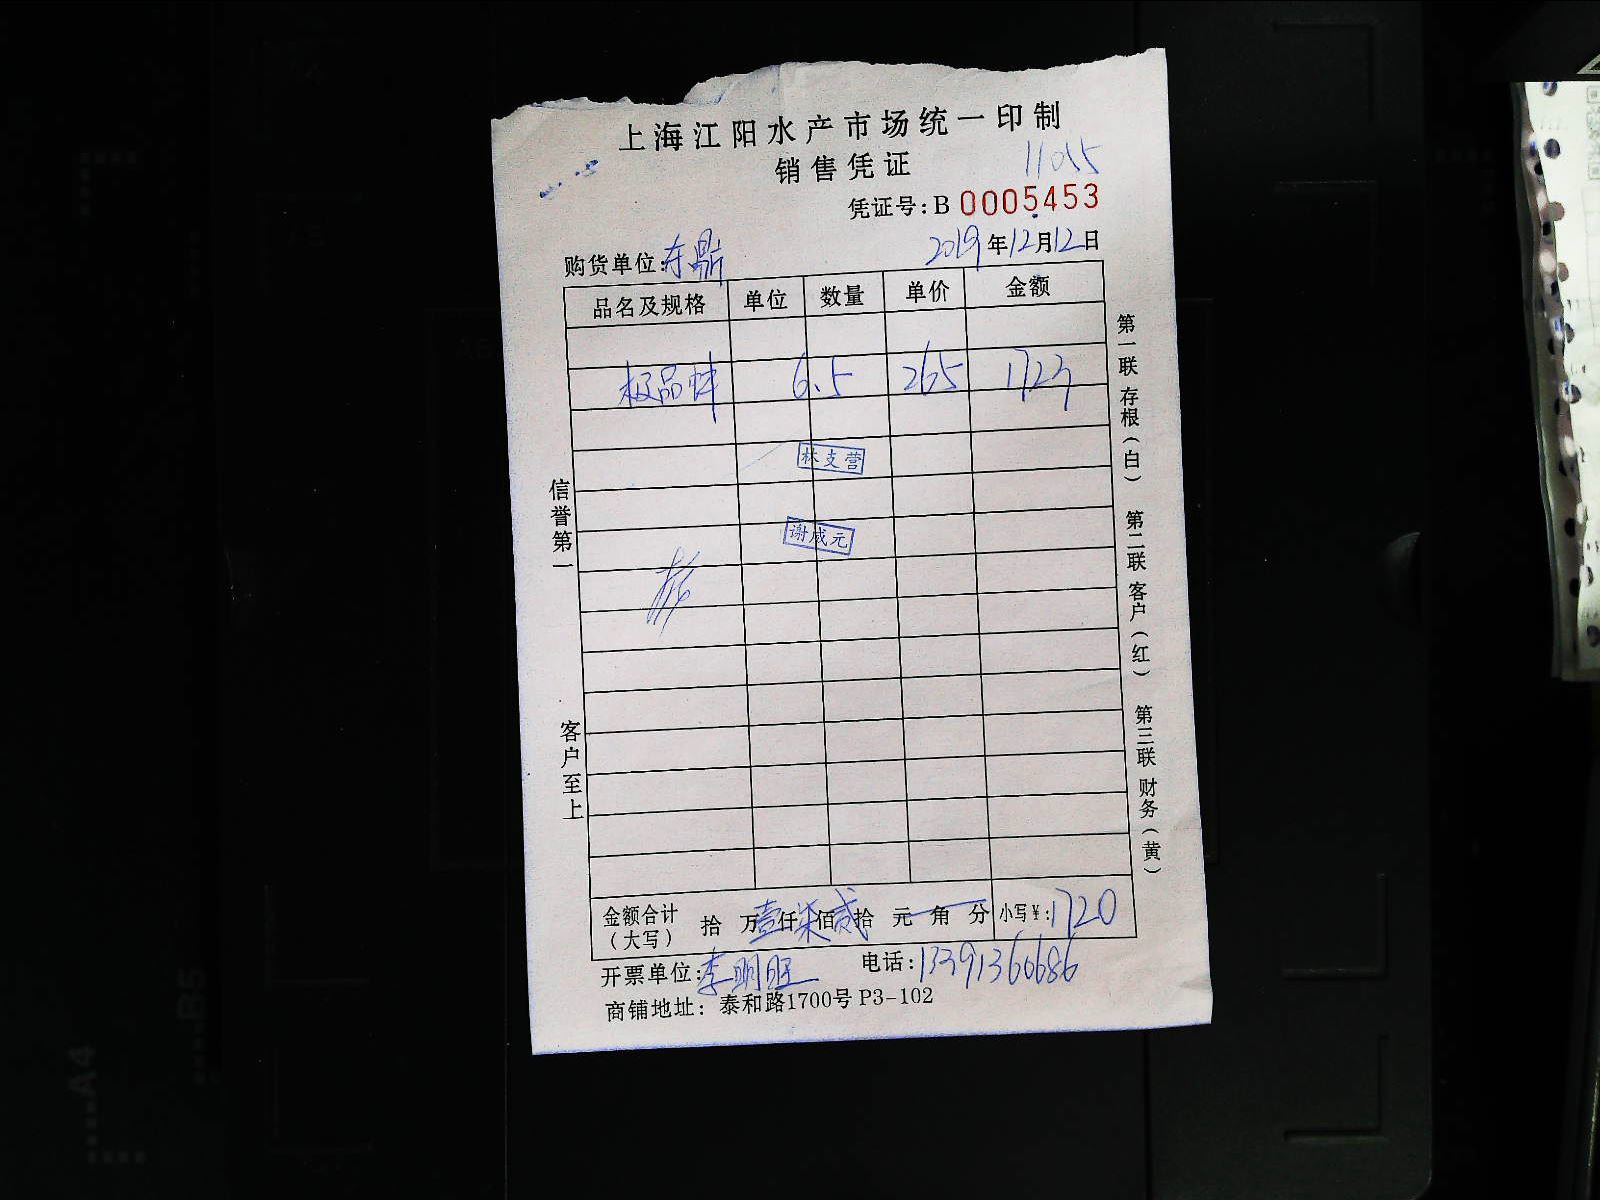 上海江阳水产市场统一印制
销售凭证
11055
凭证号:B 0005453
购货单位:东鼎
2019年12月12日
品名及规格 单位 数量 单价 金额
极品蚌 6.5 265 1723
林支营
谢成元
信誉第一
客户至上
第一联 存根(白)
第二联 客户(红)
第三联 财务(黄)
金额合计(大写) 拾 万壹仟柒佰贰拾 元 角 分 小写¥:1720
开票单位:李明旺 电话:13391366686
商铺地址:泰和路1700号 P3-102
A4
B5